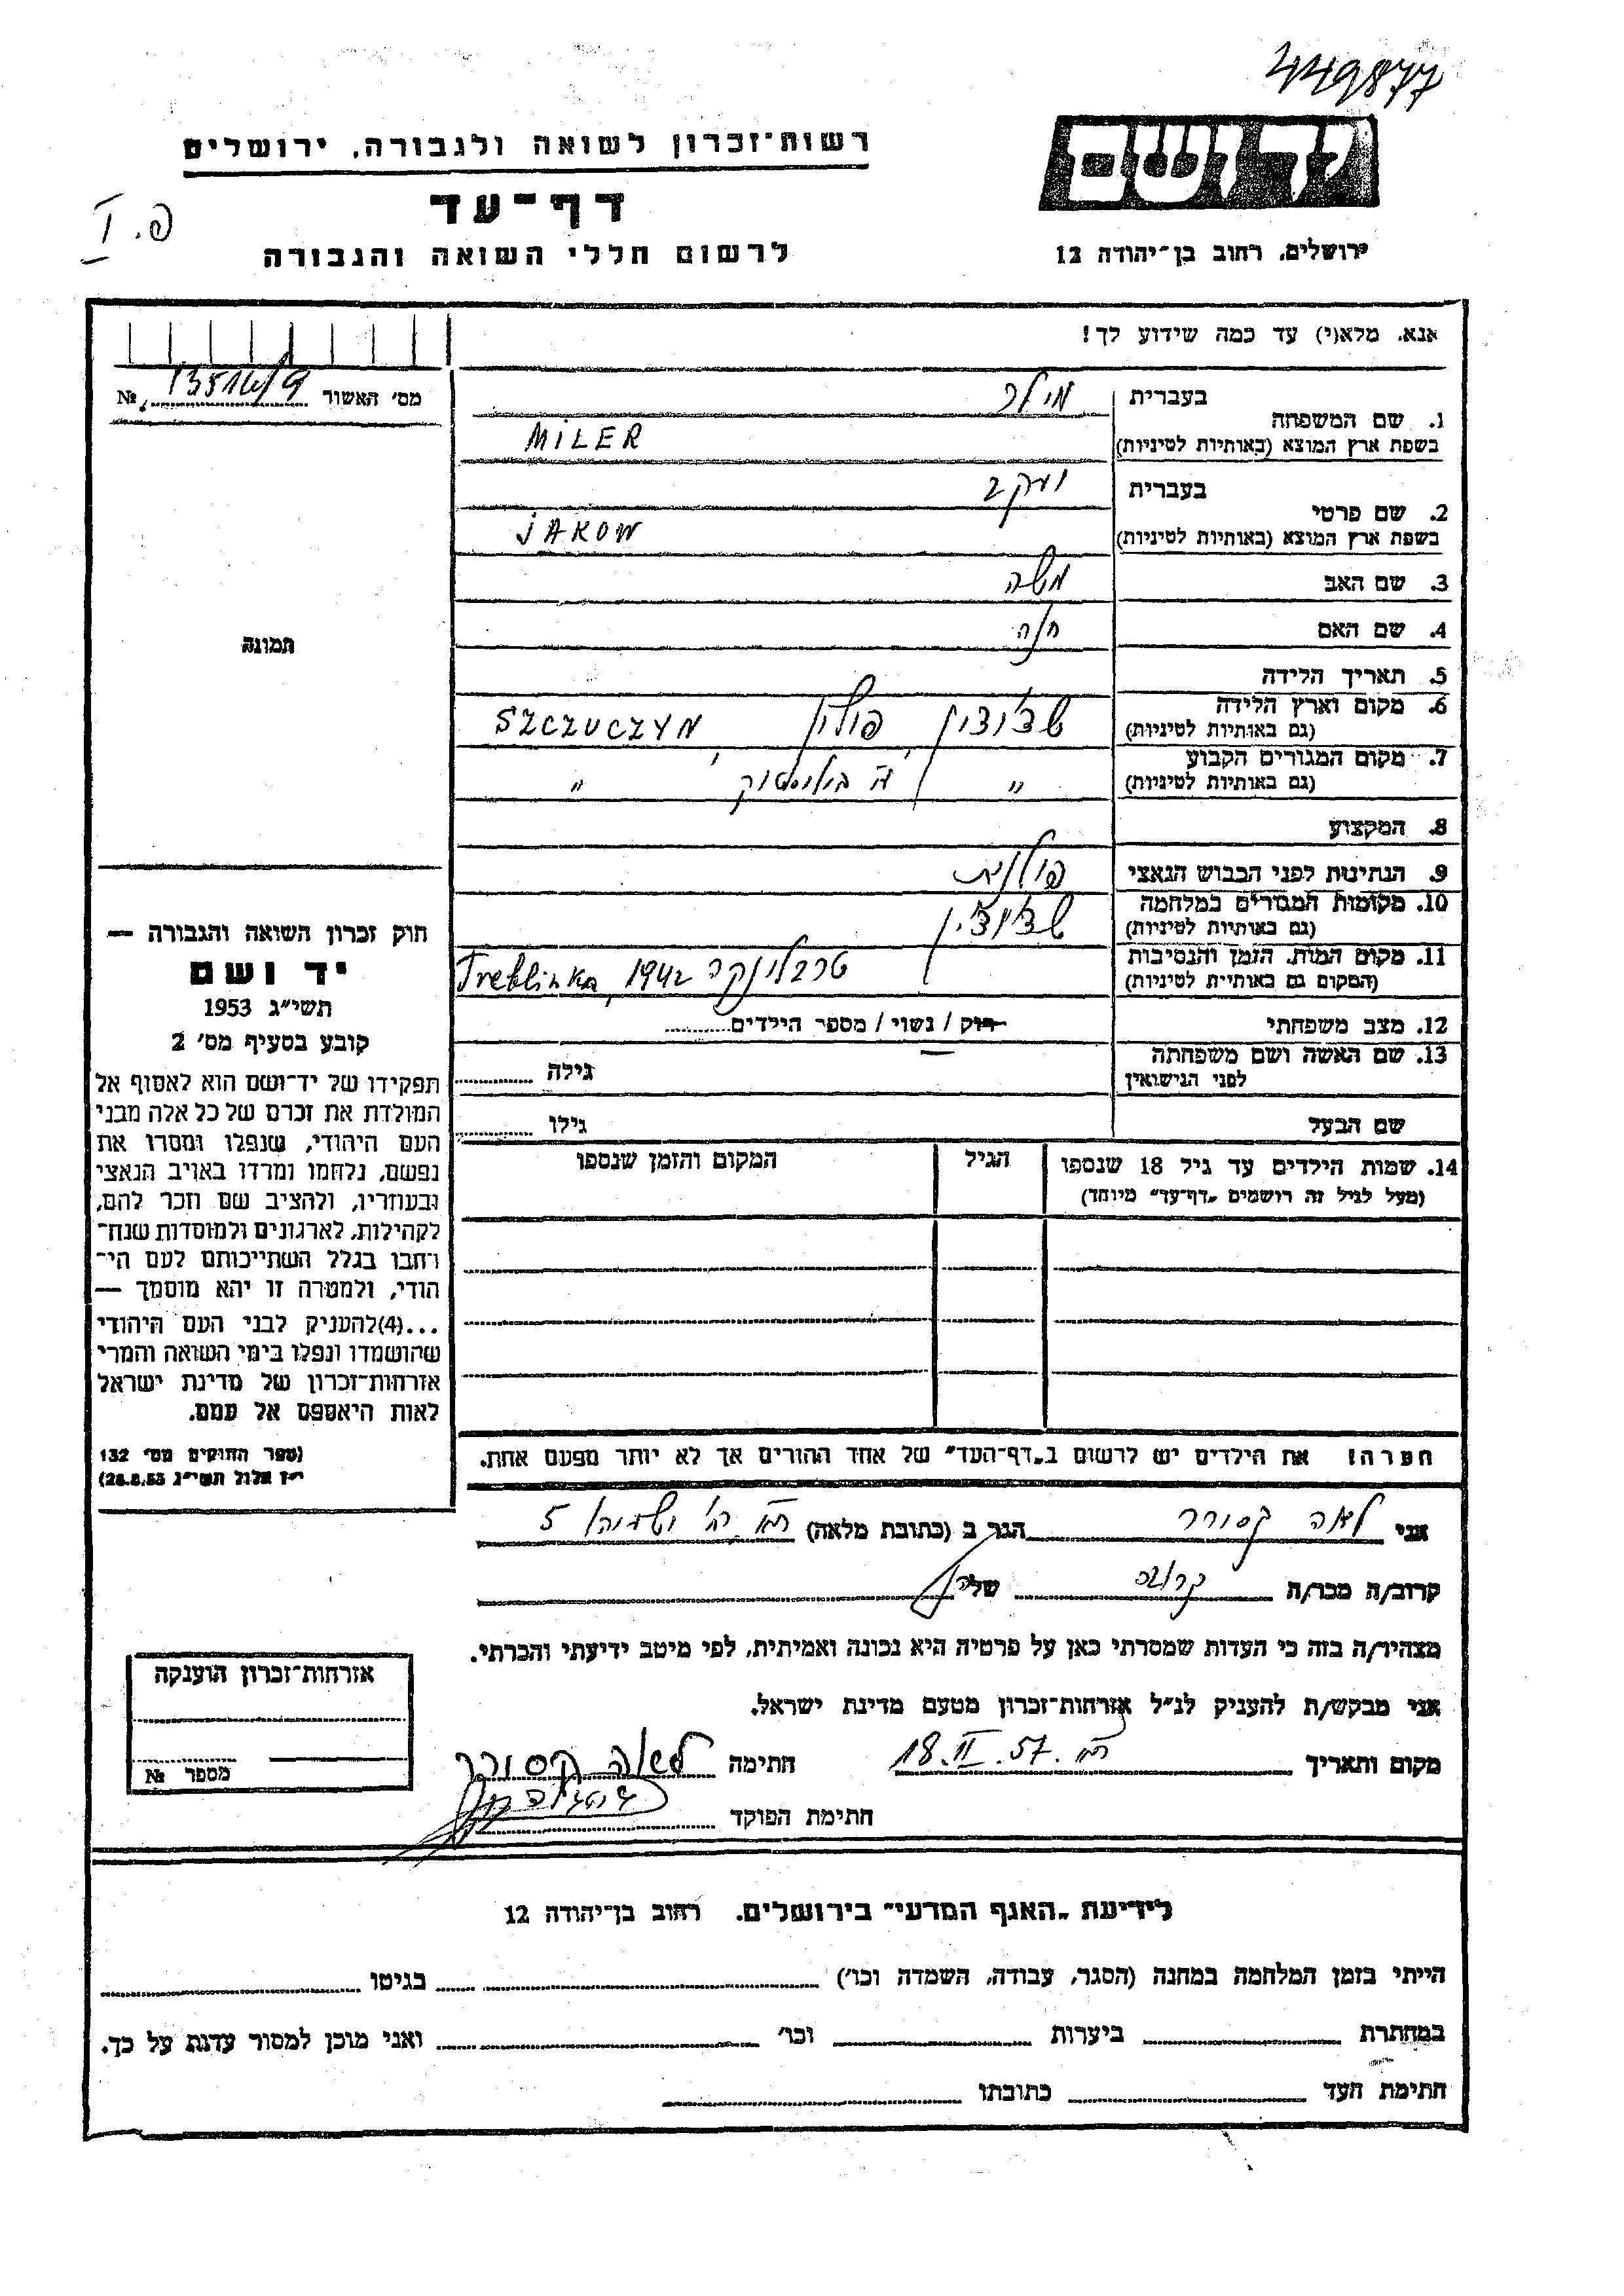 449877
יד ושם
רשות־זכרון לשואה ולגבורה, ירושלים
דף־עד
פ. I
לרשום חללי השואה והגבורה
ירושלים, רחוב בן־יהודה 12
אנא, מלא(י) עד כמה שידוע לך!
מס׳ האשור 13514/9 №
תמונה
1. שם המשפחה
בעברית מילר
בשפת ארץ המוצא (באותיות לטיניות) MiLER
2. שם פרטי
בעברית יעקב
בשפת ארץ המוצא (באותיות לטיניות) jAKOW
3. שם האב משה
4. שם האם חנה
5. תאריך הלידה
6. מקום וארץ הלידה
(גם באותיות לטיניות) שצ׳וצין, פולין, SZCZUCZYN
7. מקום המגורים הקבוע
(גם באותיות לטיניות) " ביאליסטוק "
8. המקצוע
9. הנתינות לפני הכבוש הנאצי פולנית
10. מקומות המגורים במלחמה
(גם באותיות לטיניות) שצ׳וצ׳ין
11. מקום המות, הזמן והנסיבות
(המקום גם באותיות לטיניות) טרבלינקה Treblinka, 1942
12. מצב משפחתי רוק / נשוי / מספר הילדים
13. שם האשה ושם משפחתה
לפני הנישואין גילה
שם הבעל גילו
14. שמות הילדים עד גיל 18 שנספו
(מעל לגיל זה רושמים „דף־עד״ מיוחד)
הגיל
המקום והזמן שנספו
חוק זכרון השואה והגבורה —
יד ושם
תשי״ג 1953
קובע בסעיף מס׳ 2
תפקידו של יד־ושם הוא לאסוף אל
המולדת את זכרם של כל אלה מבני
העם היהודי, שנפלו ומסרו את
נפשם, נלחמו ומרדו באויב הנאצי
ובעוזריו, ולהציב שם וזכר להם,
לקהילות, לארגונים ולמוסדות שנח־
רחבו בגלל השתייכותם לעם הי־
הודי, ולמטרה זו יהא מוסמך —
...(4)להעניק לבני העם היהודי
שהושמדו ונפלו בימי השואה והמרי
אזרחות־זכרון של מדינת ישראל
לאות היאספם אל עמם.
(ספר החוקים מס׳ 132
י״ז אלול תשי״ג 28.8.53)
הערה! את הילדים יש לרשום ב„דף־העד״ של אחד ההורים אך לא יותר מפעם אחת.
אני לאה קסורר הגר ב (כתובת מלאה) 5
קרוב/ה מכר/ה קרובה של
מצהיר/ה בזה כי העדות שמסרתי כאן על פרטיה היא נכונה ואמיתית, לפי מיטב ידיעתי והכרתי.
אני מבקש/ת להעניק לנ״ל אזרחות־זכרון מטעם מדינת ישראל.
מקום ותאריך 18.II.57 חתימה לאה קסורר
חתימת הפוקד
אזרחות־זכרון הוענקה
מספר №
לידיעת „האגף המדעי״ בירושלים, רחוב בן־יהודה 12
הייתי בזמן המלחמה במחנה (הסגר, עבודה, השמדה וכו׳) בגיטו
במחתרת ביערות וכו׳ ואני מוכן למסור עדות על כך.
חתימת העד כתובתו